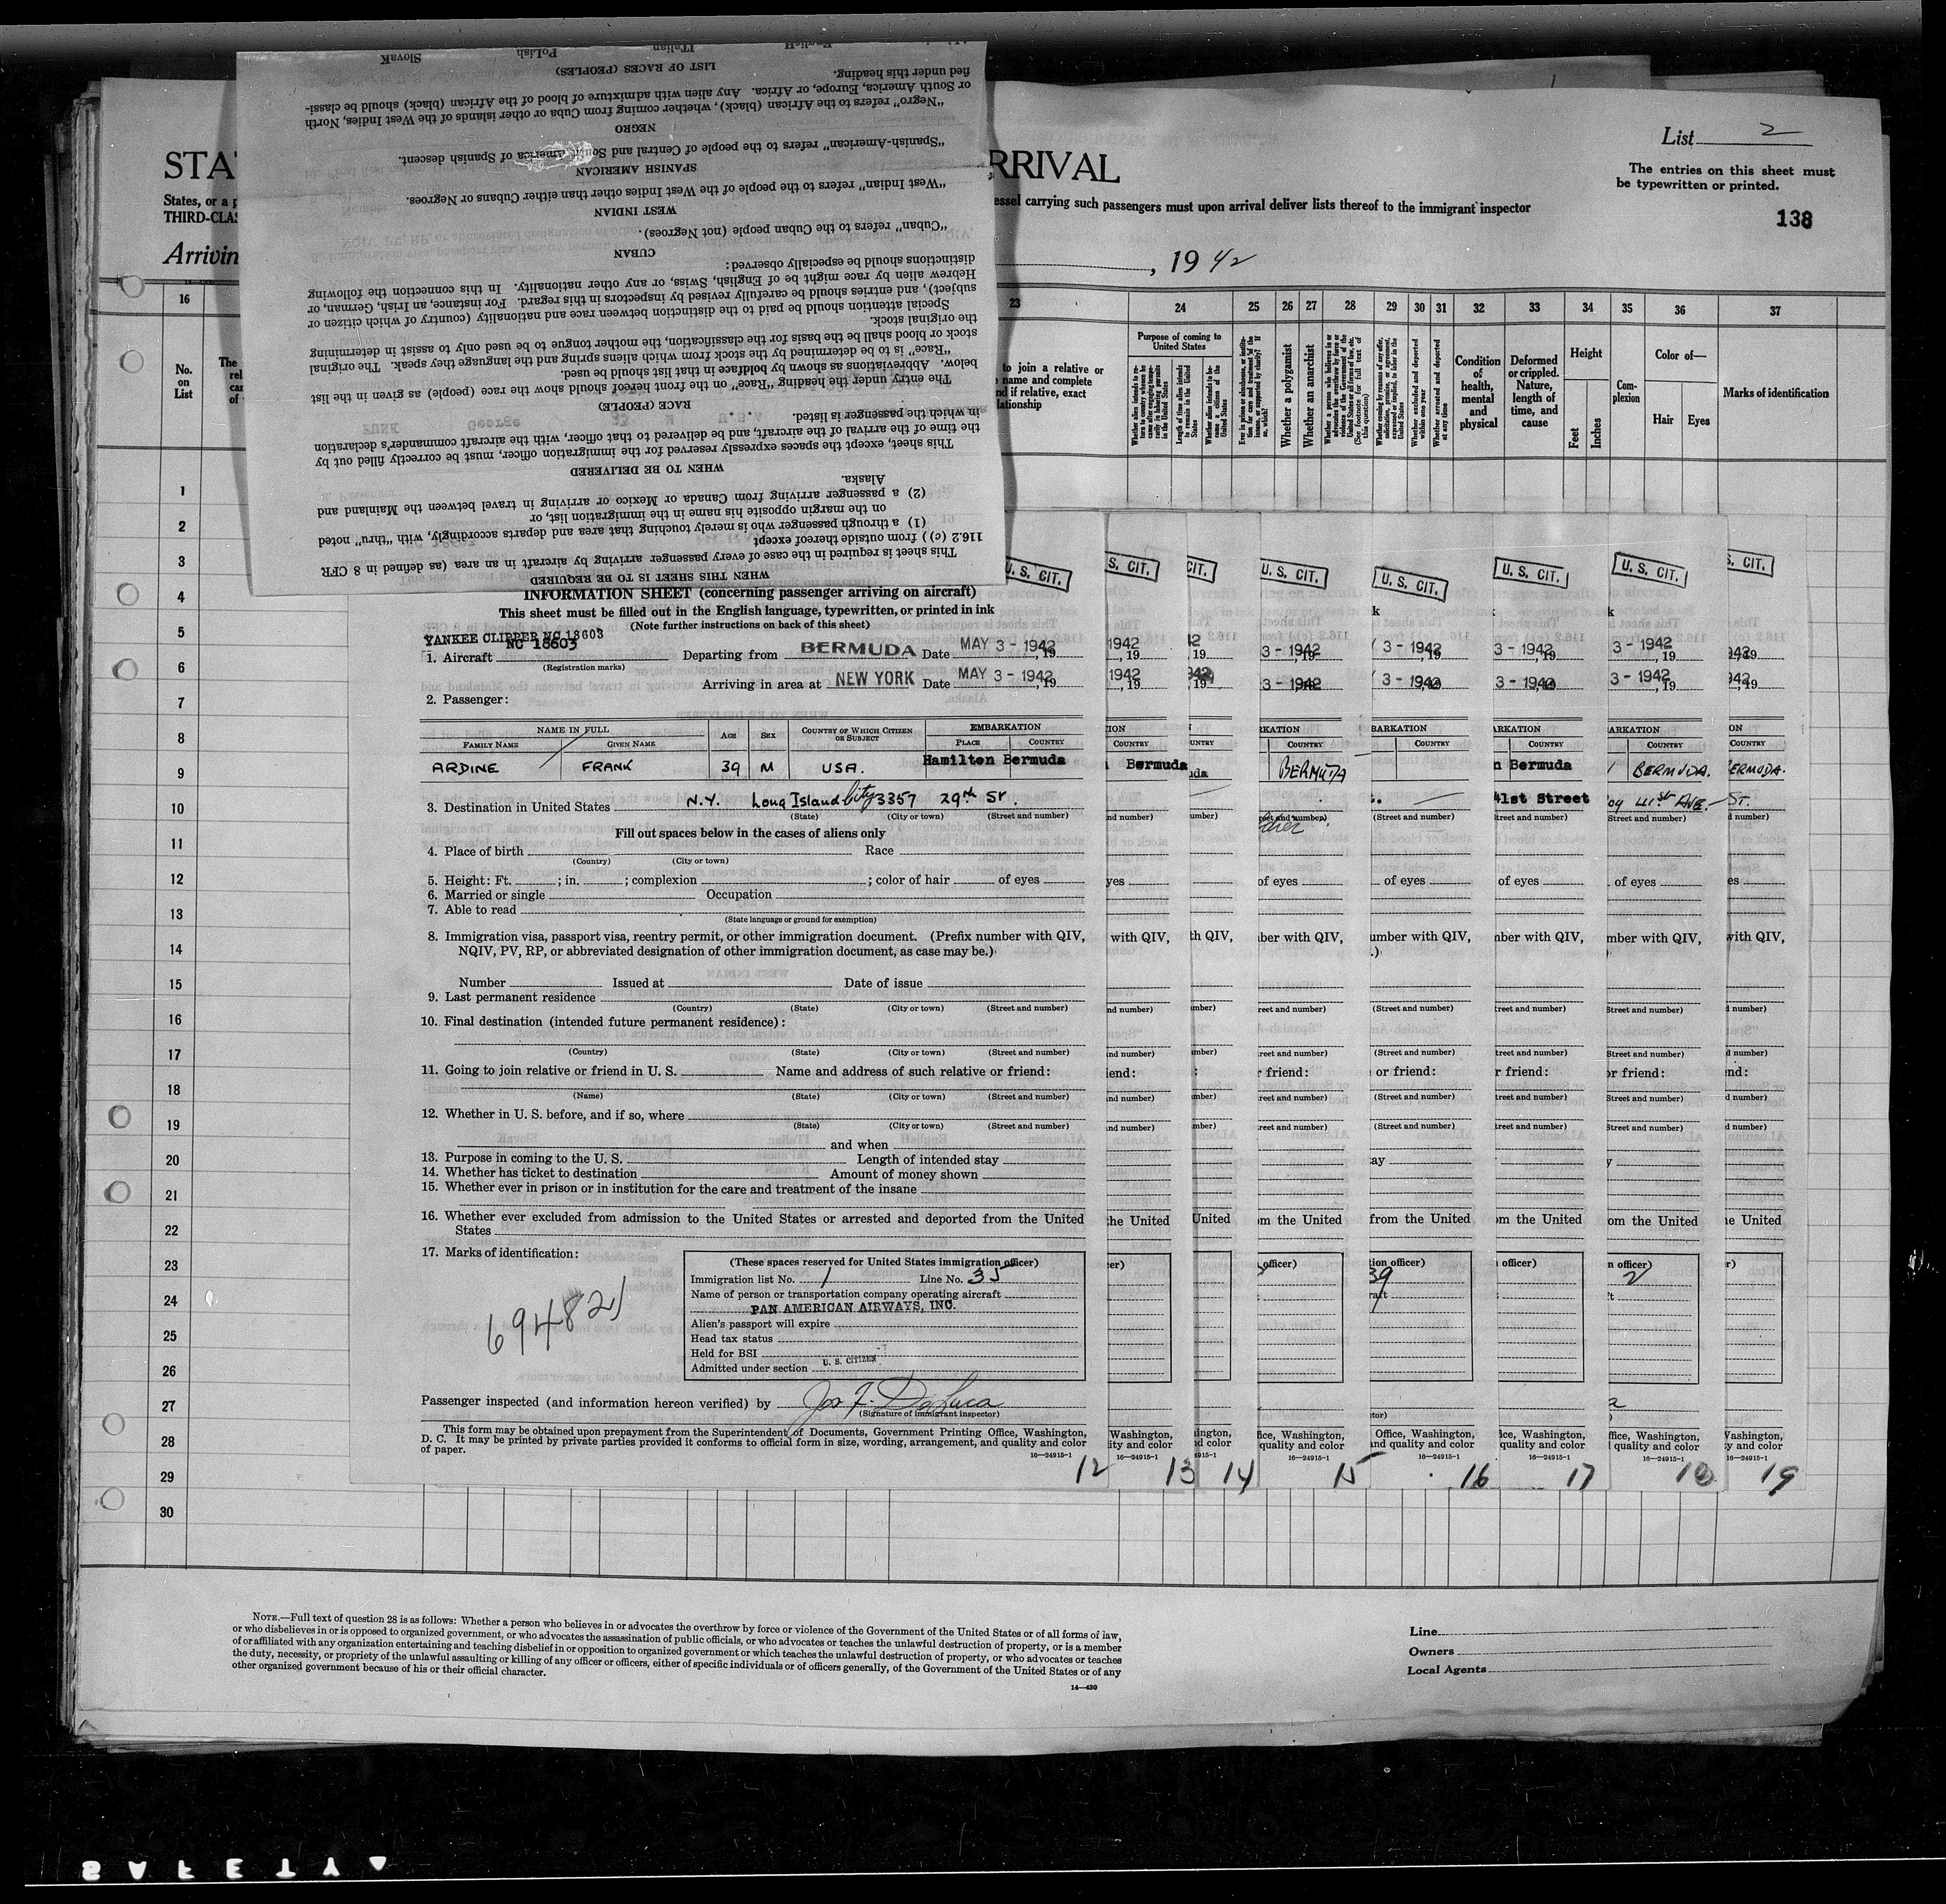 List 2
The entries on this sheet must
be typewritten or printed.
138
STA
RRIVAL
States, or a p
essel carrying such passengers must upon arrival deliver lists thereof to the immigrant inspector
THIRD-CLAS
Arrivin
, 19 42
SlovaK PoLish ITalian EnglisH
LIST OF RACES (PEOPLES)
fied under this heading.
or South America, Europe, or Africa. Any alien with admixture of blood of the African (black) should be classi-
"Negro" refers to the African (black), whether coming from Cuba or other islands of the West Indies, North
NEGRO
"Spanish-American" refers to the people of Central and South America of Spanish descent.
SPANISH AMERICAN
"West Indian" refers to the people of the West Indies other than either Cubans or Negroes.
WEST INDIAN
"Cuban" refers to the Cuban people (not Negroes).
CUBAN
distinctions should be especially observed:
Hebrew alien by race might be of English, Swiss, or any other nationality. In this connection the following
subject), and entries should be carefully revised by inspectors in this regard. For instance, an Irish, German, or
Special attention should be paid to the distinction between race and nationality (country of which citizen or
the original stock.
stock or blood shall be the basis for the classification, the mother tongue to be used only to assist in determining
"Race" is to be determined by the stock from which aliens spring and the language they speak. The original
below. Abbreviations as shown by boldface in that list should be used.
The entry under the heading "Race" on the front hereof should show the race (people) as given in the list
RACE (PEOPLE)
in which the passenger is listed.
the time of the arrival of the aircraft, and be delivered to that officer, with the aircraft commander's declaration
This sheet, except the spaces expressly reserved for the immigration officer, must be correctly filled out by
WHEN TO BE DELIVERED
Alaska.
(2) a passenger arriving from Canada or Mexico or arriving in travel between the Mainland and
on the margin opposite his name in the immigration list, or
(1) a through passenger who is merely touching that area and departs accordingly, with "thru" noted
116.2 (c)) from outside thereof except
This sheet is required in the case of every passenger arriving by aircraft in an area (as defined in 8 CFR
WHEN THIS SHEET IS TO BE REQUIRED
16 23 24 25 26 27 28 29 30 31 32 33 34 35 36 37
No.
on
List
to join a relative or
name and complete
nd if relative, exact
lationship
Purpose of coming to
United States
Whether a polygamist
Whether an anarchist
Whether excluded and deported within one year
Whether arrested and deported at any time
Condition
of
health,
mental
and
physical
Deformed
or crippled.
Nature,
length of
time, and
cause
Height
Feet Inches
Com-
plexion
Color of—
Hair Eyes
Marks of identification
1
2
3
4
5
6
7
8
9
10
11
12
13
14
15
16
17
18
19
20
21
22
23
24
25
26
27
28
29
30
U. S. CIT.
INFORMATION SHEET (concerning passenger arriving on aircraft)
This sheet must be filled out in the English language, typewritten, or printed in ink
(Note further instructions on back of this sheet)
YANKEE CLIPPER NC 18603
NC 18603
1. Aircraft Departing from BERMUDA Date MAY 3 - 1942, 19
(Registration marks)
Arriving in area at NEW YORK Date MAY 3 - 1942, 19
2. Passenger:
NAME IN FULL AGE SEX COUNTRY OF WHICH CITIZEN OR SUBJECT EMBARKATION
FAMILY NAME GIVEN NAME PLACE COUNTRY
ARDINE FRANK 39 M USA. Hamilton Bermuda
3. Destination in United States N.Y. Long Island City 3357 29th St.
(State) (City or town) (Street and number)
Fill out spaces below in the cases of aliens only
4. Place of birth Race
(Country) (City or town)
5. Height: Ft. ; in. ; complexion ; color of hair of eyes
6. Married or single Occupation
7. Able to read
(State language or ground for exemption)
8. Immigration visa, passport visa, reentry permit, or other immigration document. (Prefix number with QIV,
NQIV, PV, RP, or abbreviated designation of other immigration document, as case may be.)
Number Issued at Date of issue
9. Last permanent residence
(Country) (State) (City or town) (Street and number)
10. Final destination (intended future permanent residence):
(Country) (State) (City or town) (Street and number)
11. Going to join relative or friend in U. S. Name and address of such relative or friend:
(Name) (State) (City or town) (Street and number)
12. Whether in U. S. before, and if so, where
(State) (City or town) (Street and number)
and when
13. Purpose in coming to the U. S. Length of intended stay
14. Whether has ticket to destination Amount of money shown
15. Whether ever in prison or in institution for the care and treatment of the insane
16. Whether ever excluded from admission to the United States or arrested and deported from the United
States
17. Marks of identification:
694821
(These spaces reserved for United States immigration officer)
Immigration list No. 1 Line No. 35
Name of person or transportation company operating aircraft
PAN AMERICAN AIRWAYS, INC.
Alien's passport will expire
Head tax status
Held for BSI
Admitted under section U. S. CITIZEN
Passenger inspected (and information hereon verified) by Jos. F. DeLuca
(Signature of immigrant inspector)
This form may be obtained upon prepayment from the Superintendent of Documents, Government Printing Office, Washington,
D. C. It may be printed by private parties provided it conforms to official form in size, wording, arrangement, and quality and color
of paper.
16—24915-1
12 13 14 15 16 17 18 19
S. CIT. CIT. U. S. CIT. U. S. CIT. U. S. CIT. U. S. CIT. S. CIT.
Bermuda BERMUDA n Bermuda BERMUDA. ERMUDA.
41st Street 41st Ave. St.
NOTE.—Full text of question 28 is as follows: Whether a person who believes in or advocates the overthrow by force or violence of the Government of the United States or of all forms of law,
or who disbelieves in or is opposed to organized government, or who advocates the assassination of public officials, or who advocates or teaches the unlawful destruction of property, or is a member
of or affiliated with any organization entertaining and teaching disbelief in or opposition to organized government or which teaches the unlawful destruction of property, or who advocates or teaches
the duty, necessity, or propriety of the unlawful assaulting or killing of any officer or officers, either of specific individuals or of officers generally, of the Government of the United States or of any
other organized government because of his or their official character.
14—430
Line
Owners
Local Agents
SAFETY